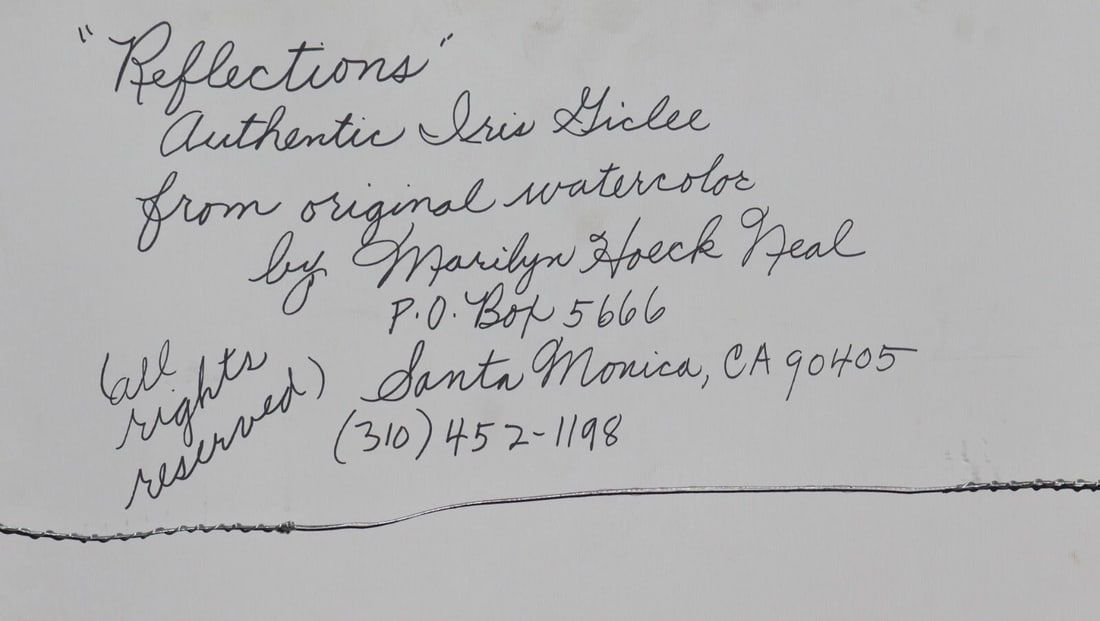 "Reflections"
Authentic Iris Giclee
from original watercolor
by Marilyn Hoeck Neal
P.O. Box 5666
Santa Monica, CA 90405
(310) 452-1198
(all
rights
reserved)